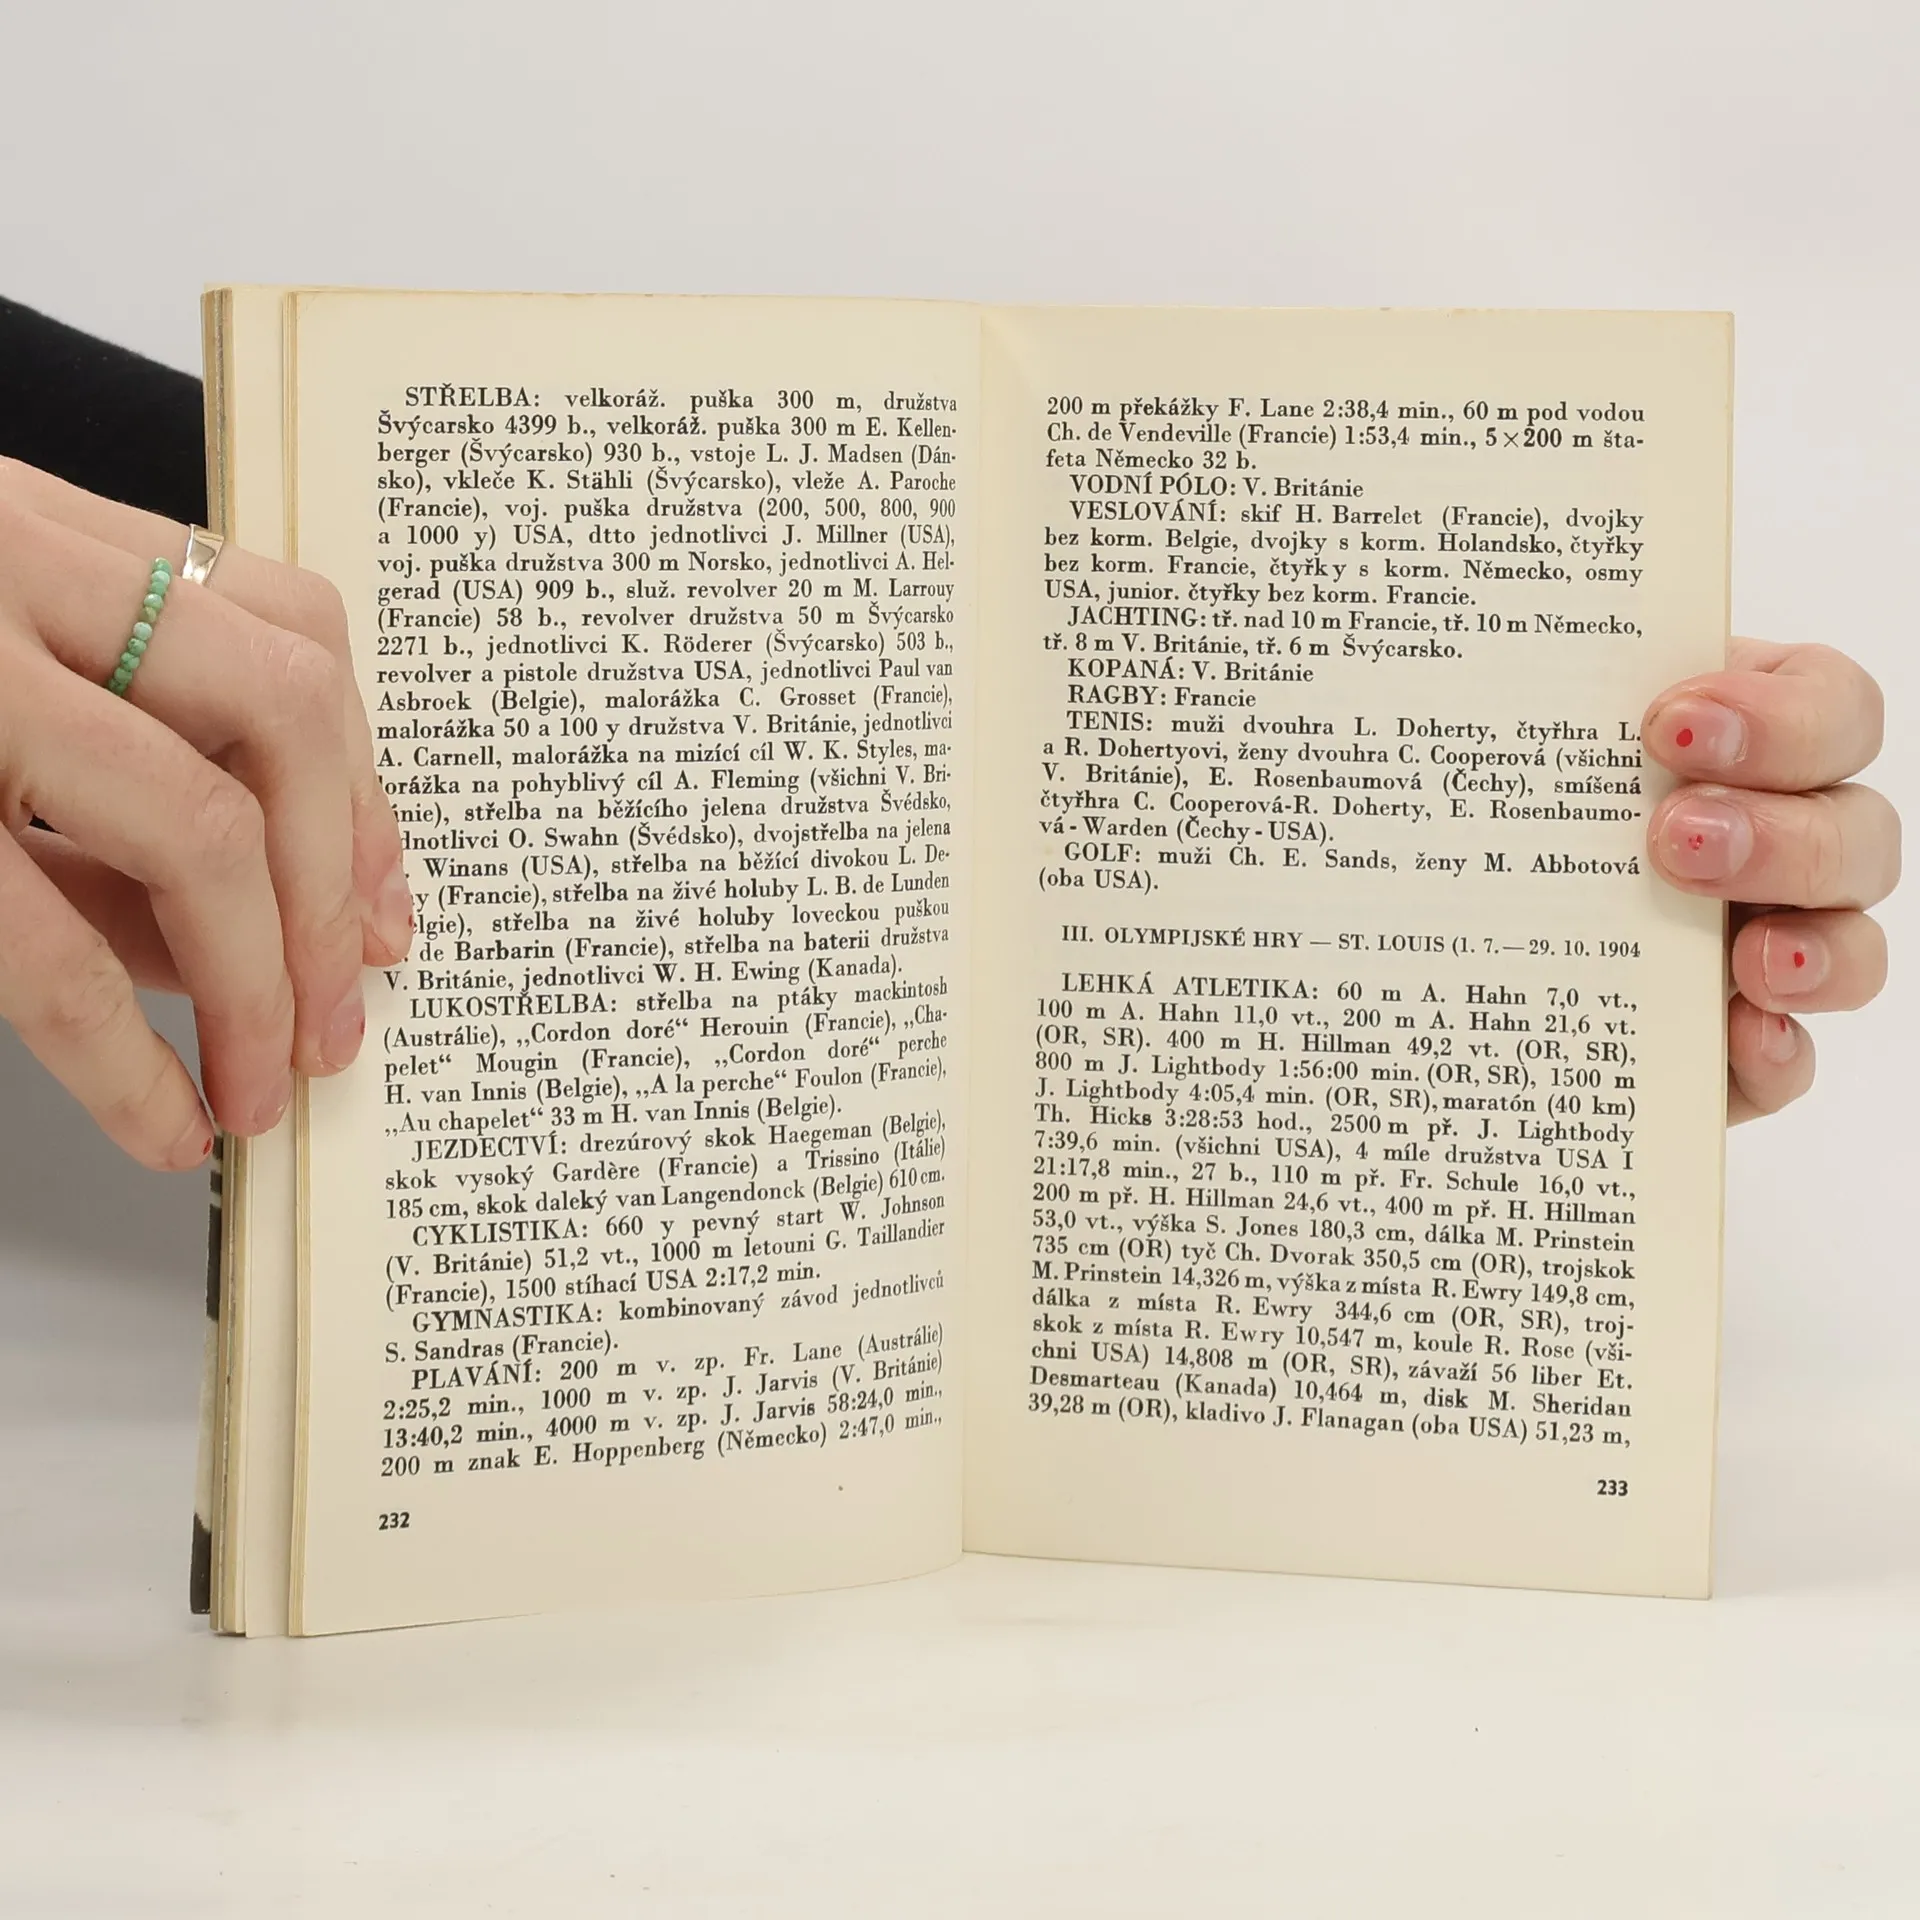 STŘELBA: velkoráž. puška 300 m, družstva
Švýcarsko 4399 b., velkoráž. puška 300 m E. Kellen-
berger (Švýcarsko) 930 b., vstoje L. J. Madsen (Dán-
sko), vkleče K. Stähli (Švýcarsko), vleže A. Paroche
(Francie), voj. puška družstva (200, 500, 800, 900
a 1000 y) USA, dtto jednotlivci J. Millner (USA),
voj. puška družstva 300 m Norsko, jednotlivci A. Hel-
gerad (USA) 909 b., služ. revolver 20 m M. Larrouy
(Francie) 58 b., revolver družstva 50 m Švýcarsko
2271 b., jednotlivci K. Röderer (Švýcarsko) 503 b.,
revolver a pistole družstva USA, jednotlivci Paul van
Asbroek (Belgie), malorážka C. Grosset (Francie),
malorážka 50 a 100 y družstva V. Británie, jednotlivci
A. Carnell, malorážka na mizící cíl W. K. Styles, ma-
lorážka na pohyblivý cíl A. Fleming (všichni V. Bri-
nie), střelba na běžícího jelena družstva Švédsko,
dnotlivci O. Swahn (Švédsko), dvojstřelba na jelena
. Winans (USA), střelba na běžící divokou L. De-
y (Francie), střelba na živé holuby L. B. de Lunden
elgie), střelba na živé holuby loveckou puškou
. de Barbarin (Francie), střelba na baterii družstva
V. Británie, jednotlivci W. H. Ewing (Kanada).
LUKOSTŘELBA: střelba na ptáky mackintosh
(Austrálie), „Cordon doré“ Herouin (Francie), „Cha-
pelet“ Mougin (Francie), „Cordon doré“ perche
H. van Innis (Belgie), „A la perche“ Foulon (Francie),
„Au chapelet“ 33 m H. van Innis (Belgie).
JEZDECTVÍ: drezúrový skok Haegeman (Belgie),
skok vysoký Gardère (Francie) a Trissino (Itálie)
185 cm, skok daleký van Langendonck (Belgie) 610 cm.
CYKLISTIKA: 660 y pevný start W. Johnson
(V. Británie) 51,2 vt., 1000 m letouni G. Taillandier
(Francie), 1500 stíhací USA 2:17,2 min.
GYMNASTIKA: kombinovaný závod jednotlivců
S. Sandras (Francie).
PLAVÁNÍ: 200 m v. zp. Fr. Lane (Austrálie)
2:25,2 min., 1000 m v. zp. J. Jarvis (V. Británie)
13:40,2 min., 4000 m v. zp. J. Jarvis 58:24,0 min.,
200 m znak E. Hoppenberg (Německo) 2:47,0 min.,
232
200 m překážky F. Lane 2:38,4 min., 60 m pod vodou
Ch. de Vendeville (Francie) 1:53,4 min., 5×200 m šta-
feta Německo 32 b.
VODNÍ PÓLO: V. Británie
VESLOVÁNÍ: skif H. Barrelet (Francie), dvojky
bez korm. Belgie, dvojky s korm. Holandsko, čtyřky
bez korm. Francie, čtyřky s korm. Německo, osmy
USA, junior. čtyřky bez korm. Francie.
JACHTING: tř. nad 10 m Francie, tř. 10 m Německo,
tř. 8 m V. Británie, tř. 6 m Švýcarsko.
KOPANÁ: V. Británie
RAGBY: Francie
TENIS: muži dvouhra L. Doherty, čtyřhra L.
a R. Dohertyovi, ženy dvouhra C. Cooperová (všichni
V. Británie), E. Rosenbaumová (Čechy), smíšená
čtyřhra C. Cooperová-R. Doherty, E. Rosenbaumo-
vá - Warden (Čechy - USA).
GOLF: muži Ch. E. Sands, ženy M. Abbotová
(oba USA).
III. OLYMPIJSKÉ HRY — ST. LOUIS (1. 7.—29. 10. 1904
LEHKÁ ATLETIKA: 60 m A. Hahn 7,0 vt.,
100 m A. Hahn 11,0 vt., 200 m A. Hahn 21,6 vt.
(OR, SR). 400 m H. Hillman 49,2 vt. (OR, SR),
800 m J. Lightbody 1:56:00 min. (OR, SR), 1500 m
J. Lightbody 4:05,4 min. (OR, SR), maratón (40 km)
Th. Hicks 3:28:53 hod., 2500 m př. J. Lightbody
7:39,6 min. (všichni USA), 4 míle družstva USA I
21:17,8 min., 27 b., 110 m př. Fr. Schule 16,0 vt.,
200 m př. H. Hillman 24,6 vt., 400 m př. H. Hillman
53,0 vt., výška S. Jones 180,3 cm, dálka M. Prinstein
735 cm (OR) tyč Ch. Dvorak 350,5 cm (OR), trojskok
M. Prinstein 14,326 m, výška z místa R. Ewry 149,8 cm,
dálka z místa R. Ewry 344,6 cm (OR, SR), troj-
skok z místa R. Ewry 10,547 m, koule R. Rose (vši-
chni USA) 14,808 m (OR, SR), závaží 56 liber Et.
Desmarteau (Kanada) 10,464 m, disk M. Sheridan
39,28 m (OR), kladivo J. Flanagan (oba USA) 51,23 m,
233